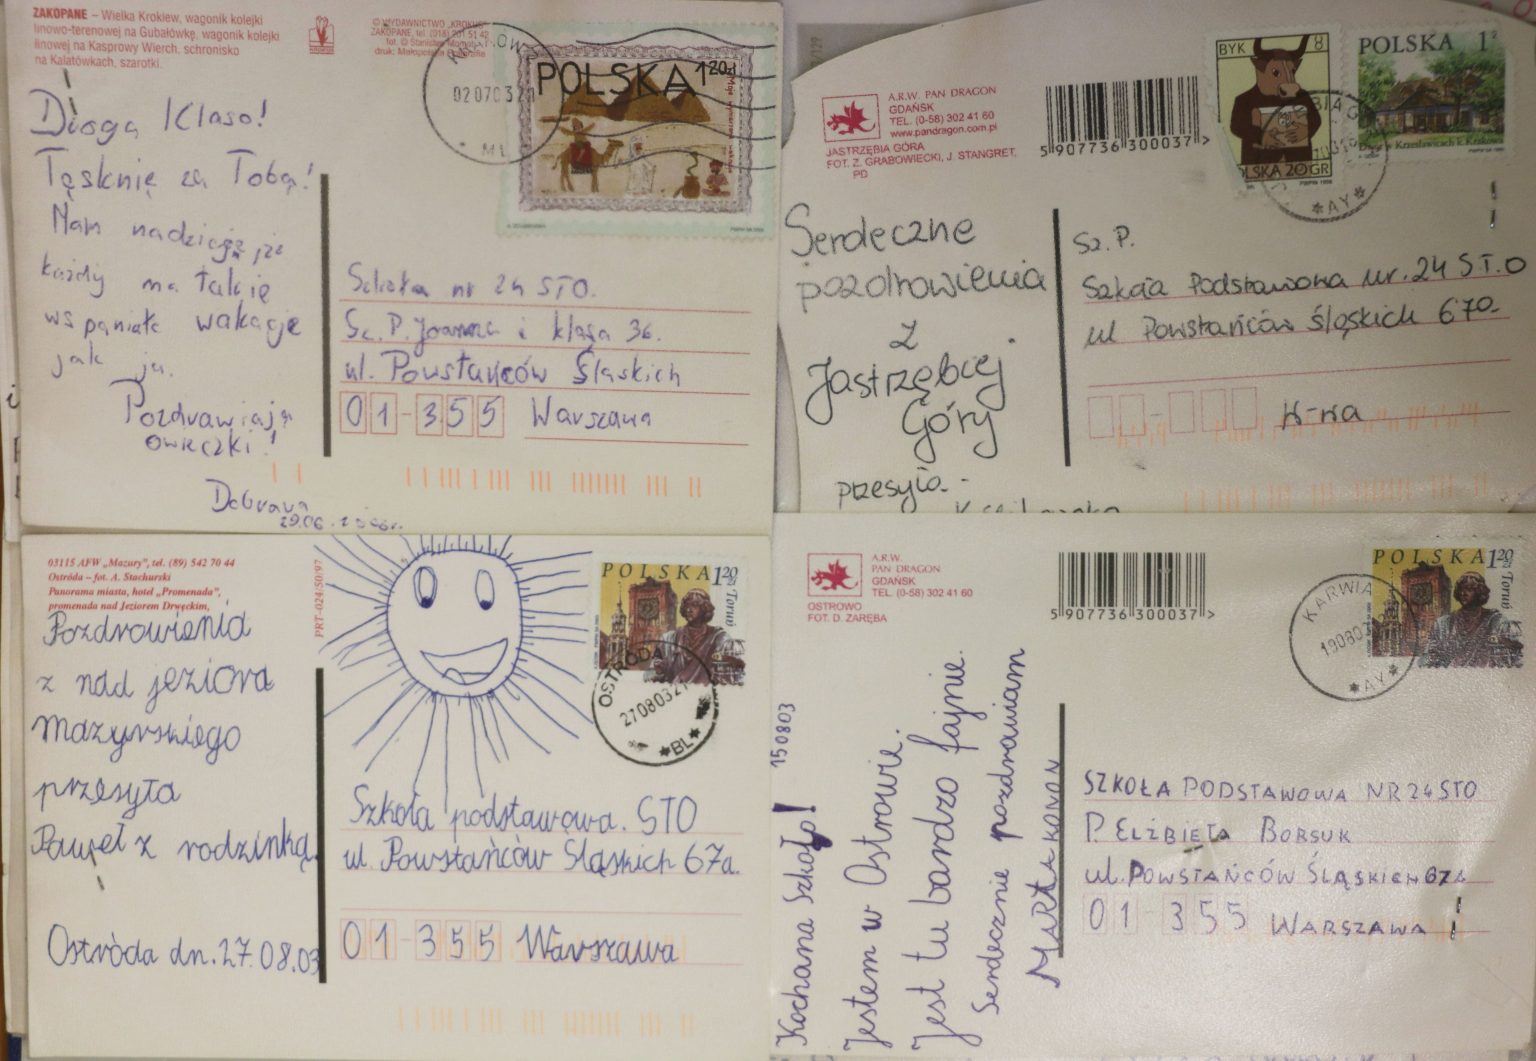 ZAKOPANE – Wielka Krokiew, wagonik kolejki
linowo-terenowej na Gubałówkę, wagonik kolejki
linowej na Kasprowy Wierch, schronisko
na Kalatówkach, szarotki.
© WYDAWNICTWO „KROKUS”
ZAKOPANE, tel. (018) 201 51 42
fot. © Stanisław
druk:
020703
POLSKA 1 20zł
Droga Klaso!
Tęsknię za Tobą!
Mam nadzieję, że
każdy ma takie
wspaniałe wakacje
jak ja.
Pozdrawiają
owieczki!
Szkoła nr 24 STO.
Sz. P. Joanna i klasa 3b.
ul. Powstańców Śląskich
01-355 Warszawa
29.06.
A.R.W. PAN DRAGON
GDAŃSK
TEL. (0-58) 302 41 60
www.pandragon.com.pl
JASTRZĘBIA GÓRA
FOT. Z. GRABOWIECKI, J. STANGRET,
PD
5 907736 300037 >
BYK
POLSKA 20GR
POLSKA 1
w Krzesławicach k. Krakowa
*AY*
Serdeczne
pozdrowienia
z
Jastrzębiej
Góry
przesyła -
Sz. P.
Szkoła Podstawowa nr. 24 S.T.O
ul Powstańców Śląskich 67a.
W-wa
03115 AFW „Mazury”, tel. (89) 542 70 44
Ostróda – fot. A. Stachurski
Panorama miasta, hotel „Promenada”,
promenada nad Jeziorem Drwęckim,
PRT-024:50/97
POLSKA 1 20zł
Toruń
OSTRÓDA
27080321
*BL*
Pozdrowienia
z nad jeziora
mazurskiego
przesyła
Paweł z rodzinką.
Ostróda dn. 27.08.03
Szkoła podstawowa. STO
ul. Powstańców Śląskich 67a.
01-355 Warszawa
A.R.W.
PAN DRAGON
GDAŃSK
TEL. (0-58) 302 41 60
OSTROWO
FOT. D. ZARĘBA
5 907736 300037 >
KARWIA
190803
*AY*
POLSKA 1 20zł
Toruń
150803
Kochana Szkoło!
Jestem w Ostrowie.
Jest tu bardzo fajnie.
Serdecznie pozdrawiam
MARTA KONON
SZKOŁA PODSTAWOWA NR 24 STO
P. ELŻBIETA BORSUK
ul. POWSTAŃCÓW ŚLĄSKICH 67A
01 355 WARSZAWA